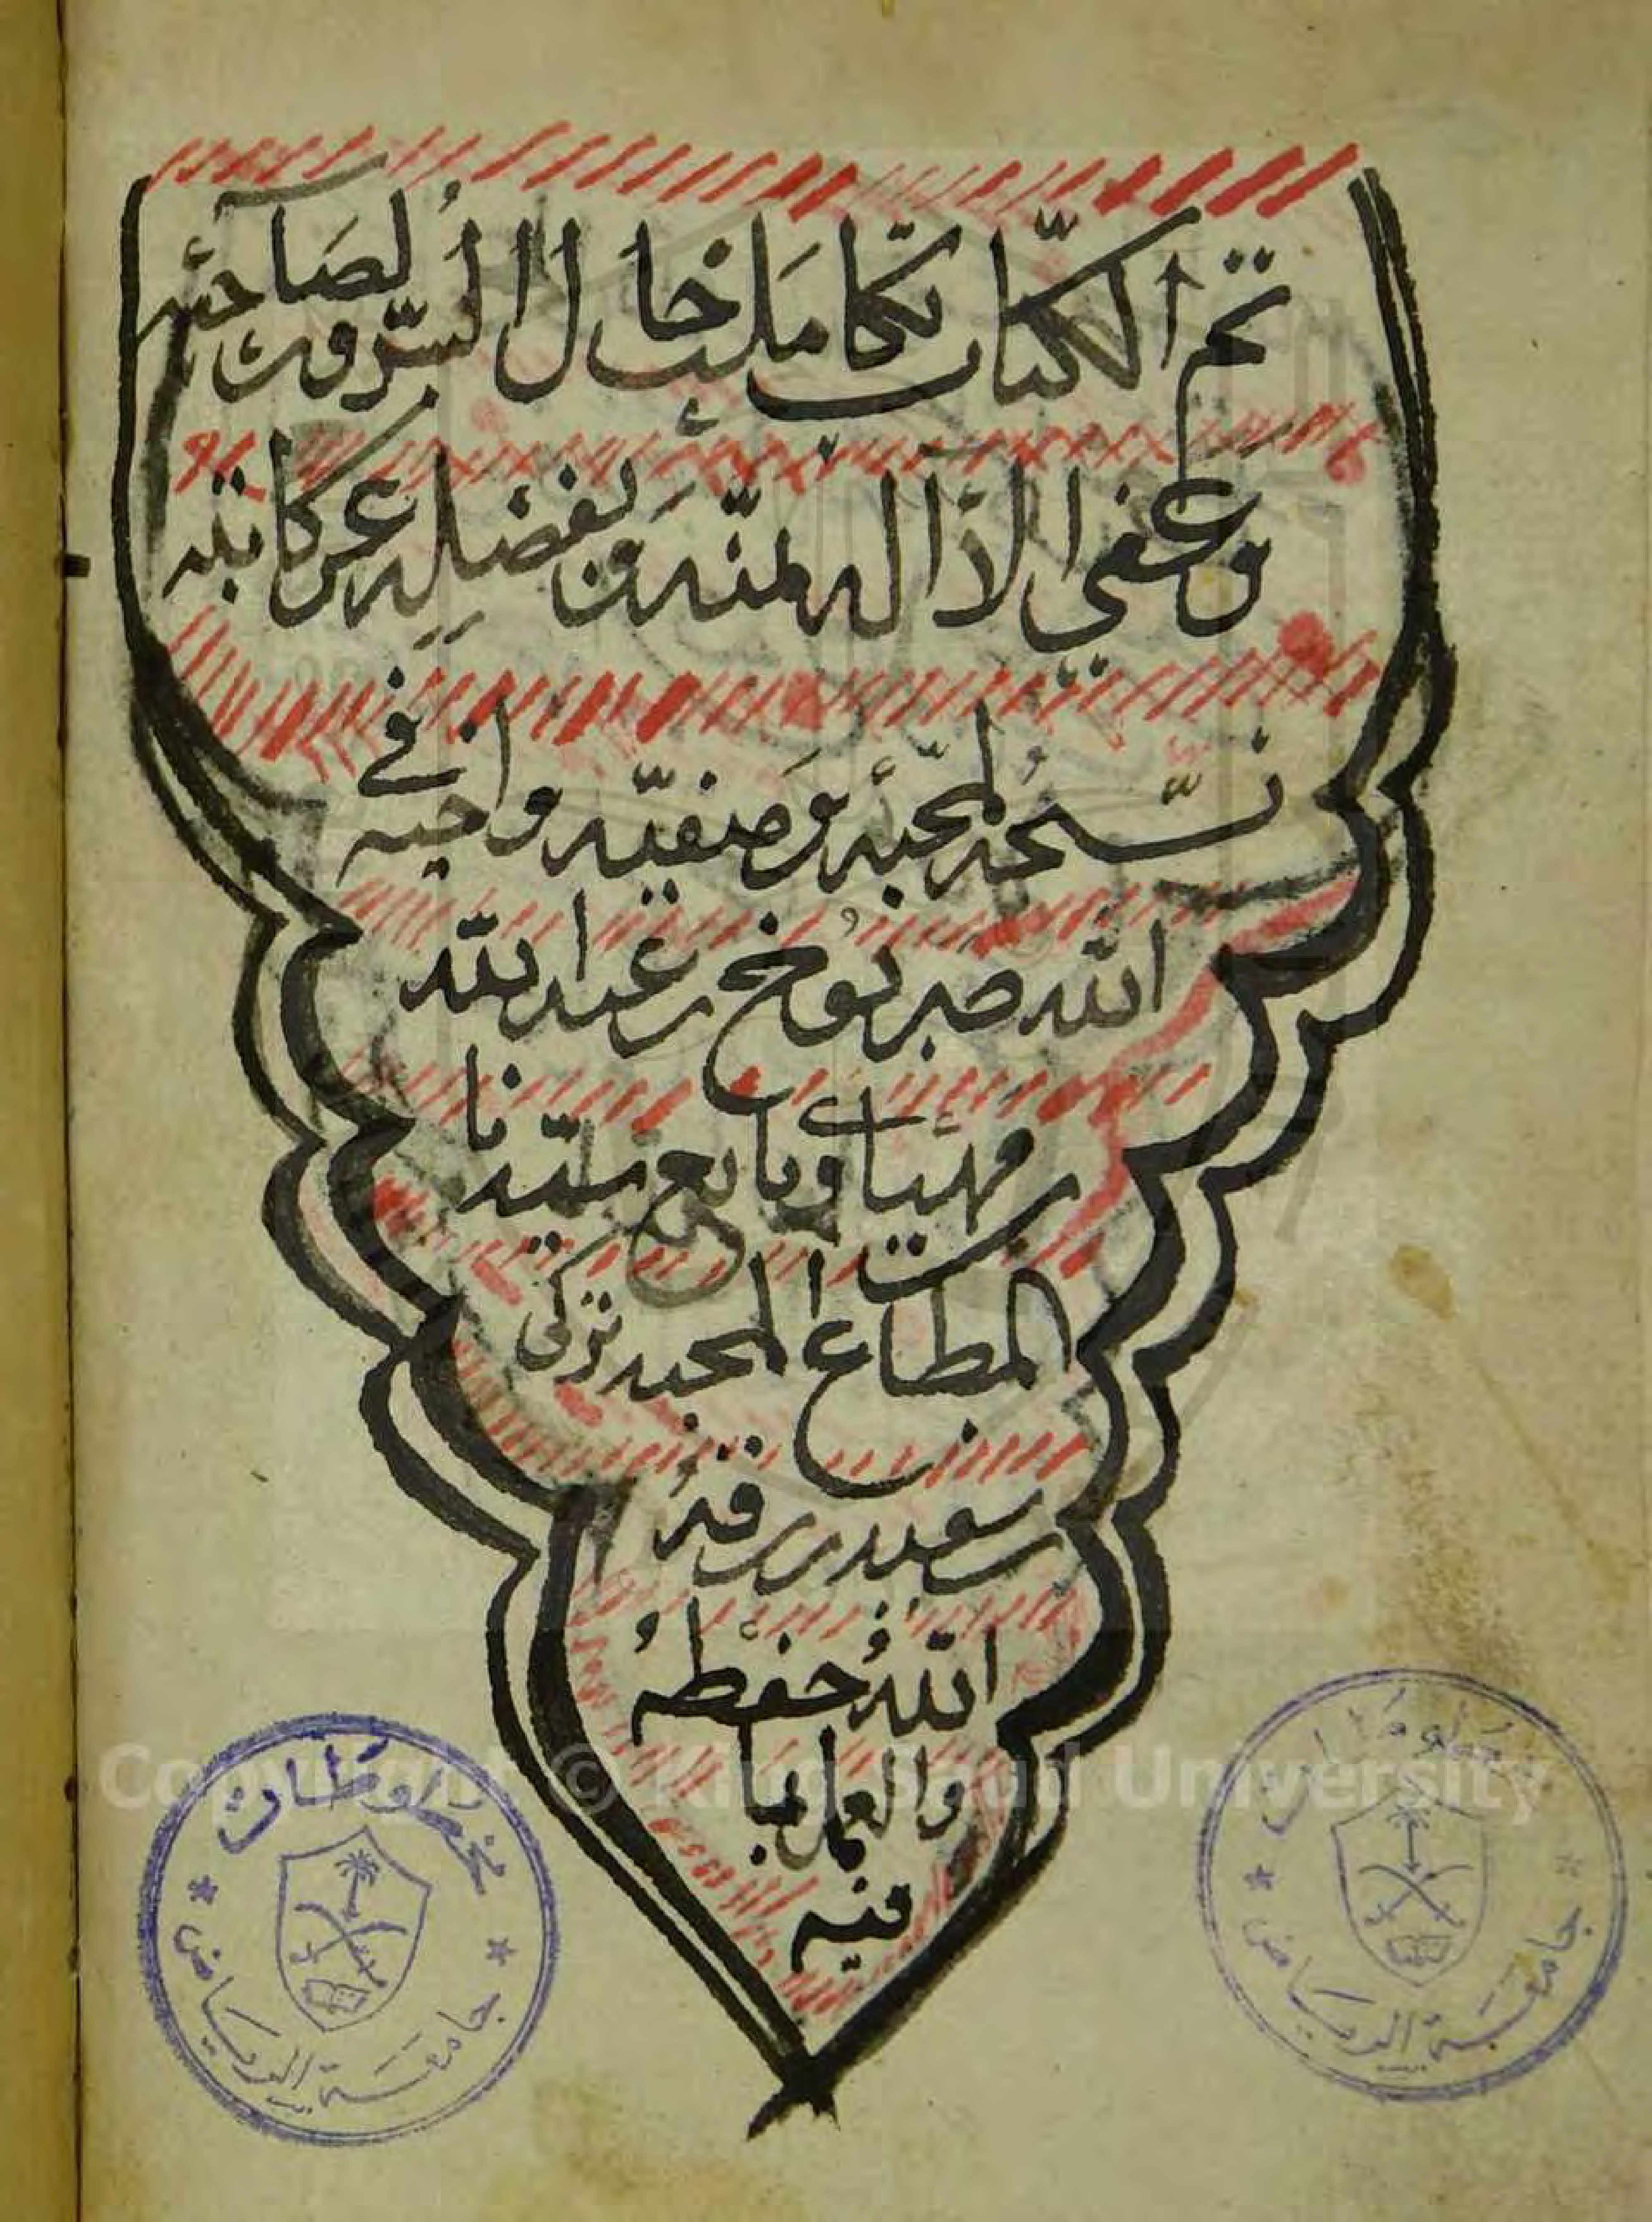 تم الكتاب تكاملت خال السرور لصاحبه
وعفي الا اله بمنه وبفضله عن كاتبه
نسخه لمحبه وصفيه واخيه في
الله عبد الله
وتابع سيدنا
المطاع المحبه تركي
سعيد رفه
الله حفظه
والعمل بما
فيه
مخطوطات
جامعة الرياض
مخطوطات
جامعة الرياض
Copyright © King Saud University